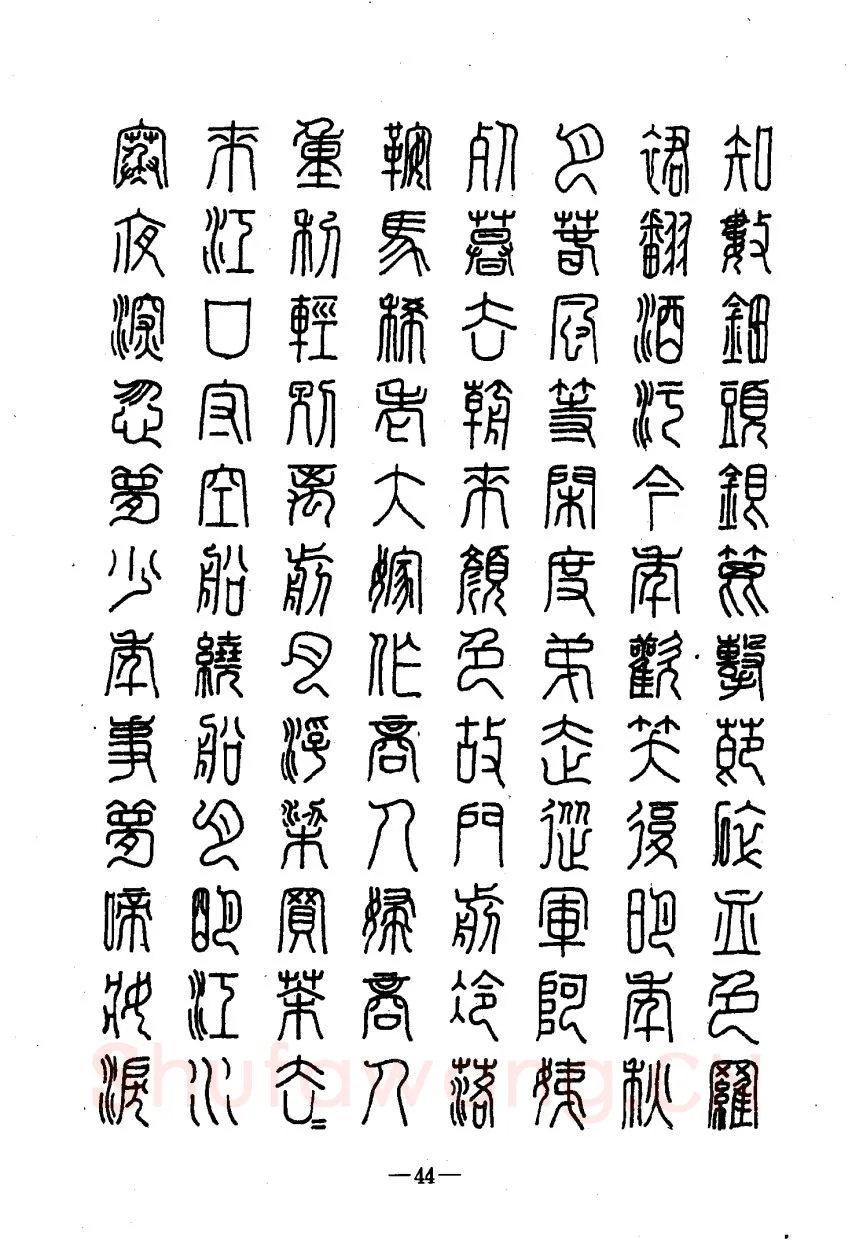 知數鈿頭銀篦擊節碎血色羅
裙翻酒污今年歡笑復明年秋
月春風等閑度弟走從軍阿姨
死暮去朝來顏色故門前冷落
鞍馬稀老大嫁作商人婦商人
重利輕別離前月浮梁買茶去=
來江口守空船繞船月明江水
寒夜深忽夢少年事夢啼妝淚
—44—
Shufawang.cn